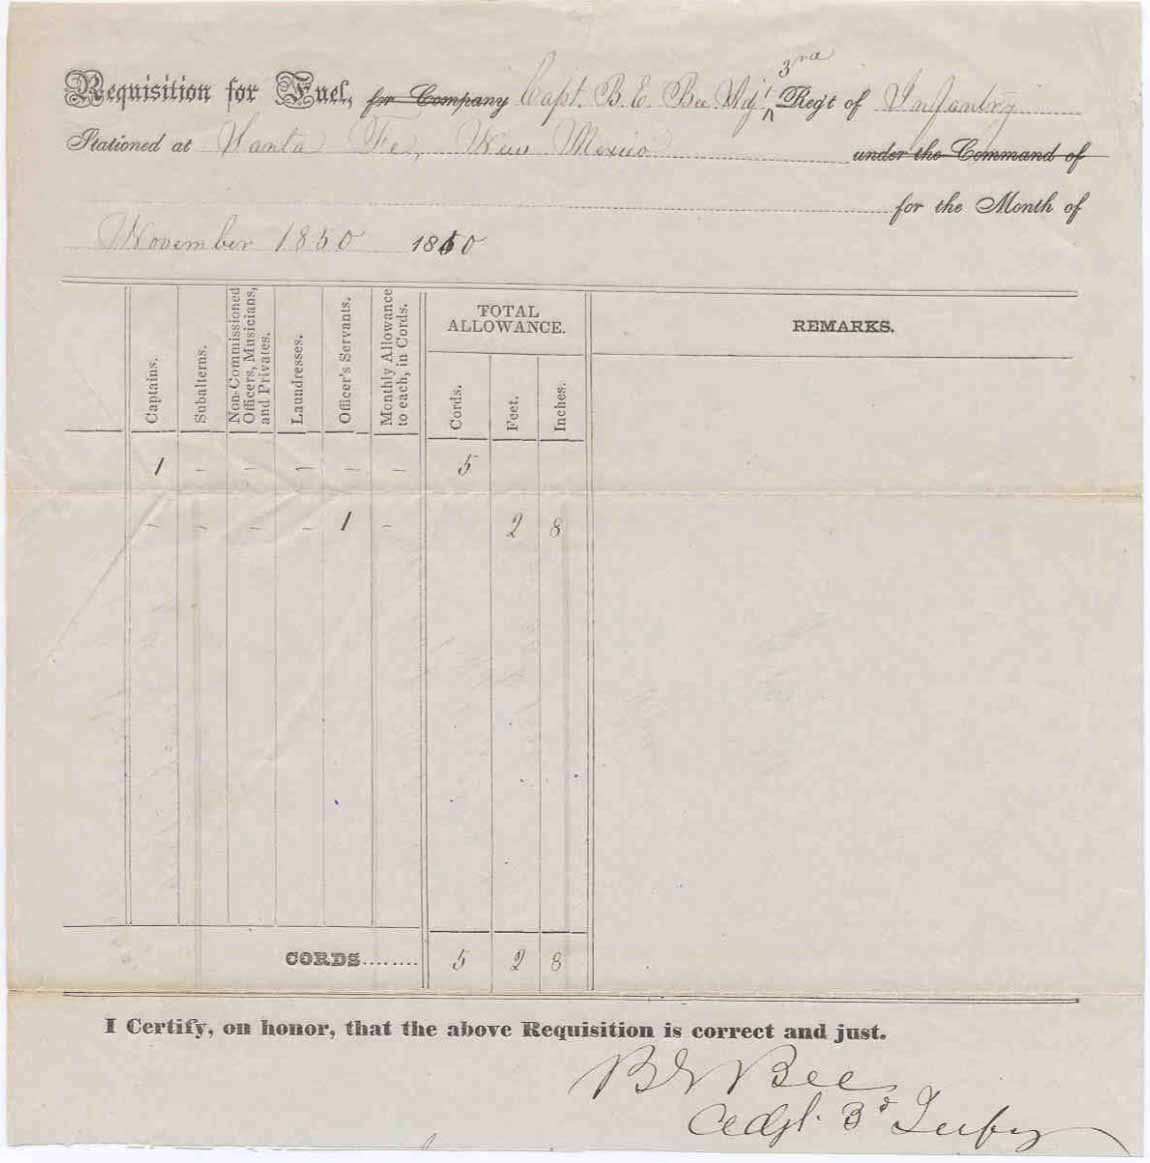 Requisition for Fuel, for Company Capt. B. E. Bee Adj't 3rd Reg't of Infantry
Stationed at Santa Fe, New Mexico under the Command of
for the Month of
November 1850 1850
Captains.
Subalterns.
Non-Commissioned Officers, Musicians, and Privates.
Laundresses.
Officer's Servants.
Monthly Allowance to each, in Cords.
TOTAL ALLOWANCE.
Cords.
Feet.
Inches.
REMARKS.
1 - - - - - 5
- - - - 1 - 2 8
CORDS........ 5 2 8
I Certify, on honor, that the above Requisition is correct and just.
B E Bee
Adjt. 3d Infy